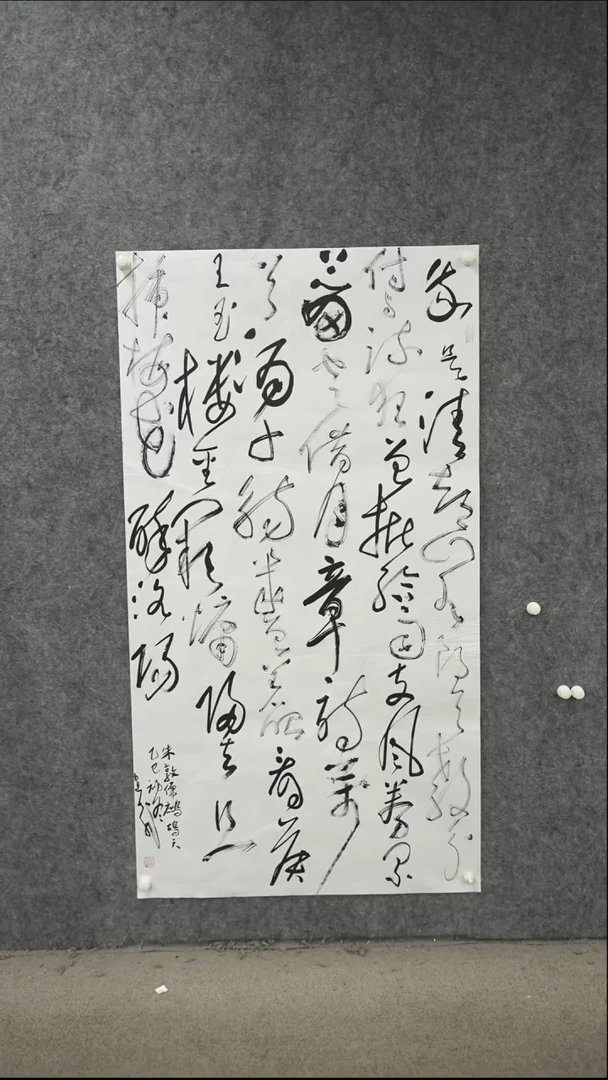 我是清都山水郎天教分
付与疏狂曾批給雨支風券累
上留云借月章詩萬
首酒千觴幾曾着眼看侯
王玉楼金闕慵歸去且
插梅花醉洛陽
朱敦儒鷓鴣天
乙巳初冬